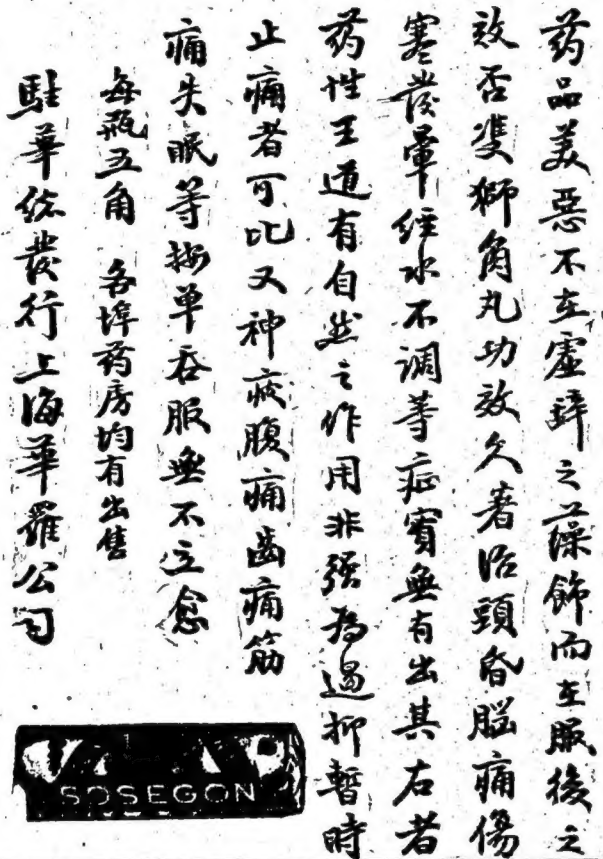 药品美惡不在虛辞之藻飾而在服後之
效否雙獅角丸功效久著治頭昏腦痛傷
寒發暈经水不调等症實無有出其右者
药性王道有自然之作用非强為遏抑暫時
止痛者可比又神疲腹痛齒痛筋
痛失眠等按单吞服無不立愈
每瓶五角 各埠药房均有出售
駐華总發行上海華羅公司
SOSEGON